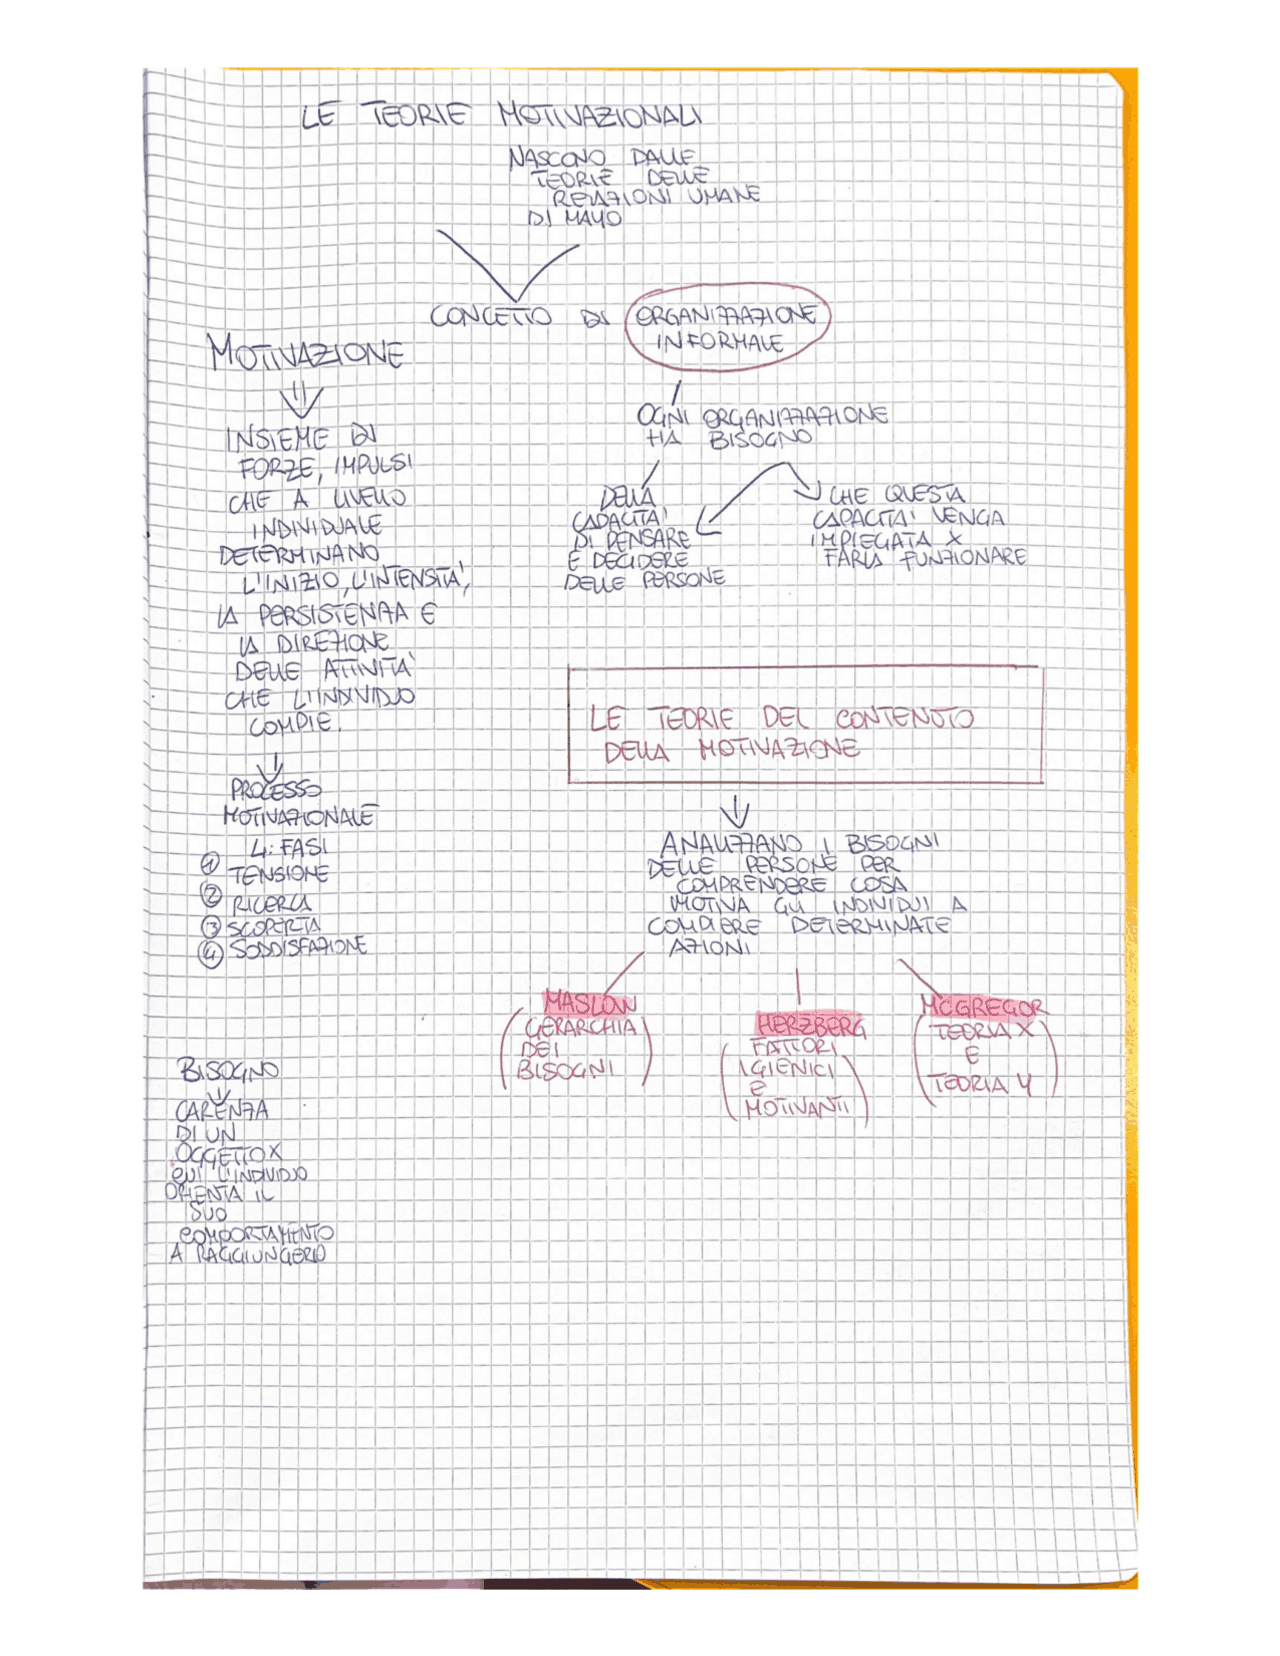 LE TEORIE MOTIVAZIONALI
NASCONO DALLE
TEORIE DELLE
RELAZIONI UMANE
DI MAYO
CONCETTO DI ORGANIZZAZIONE
INFORMALE
OGNI ORGANIZZAZIONE
HA BISOGNO
DELLA
CAPACITA'
DI PENSARE
E DECIDERE
DELLE PERSONE
CHE QUESTA
CAPACITA' VENGA
IMPIEGATA X
FARLA FUNZIONARE
MOTIVAZIONE
INSIEME DI
FORZE, IMPULSI
CHE A LIVELLO
INDIVIDUALE
DETERMINANO
L'INIZIO, L'INTENSITA',
LA PERSISTENZA E
LA DIREZIONE
DELLE ATTIVITA'
CHE L'INDIVIDUO
COMPIE.
PROCESSO
MOTIVAZIONALE
4: FASI
1 TENSIONE
2 RICERCA
3 SCOPERTA
4 SODDISFAZIONE
BISOGNO
CARENZA
DI UN
OGGETTO X
CUI L'INDIVIDUO
ORIENTA IL
SUO
COMPORTAMENTO
A RAGGIUNGERLO
LE TEORIE DEL CONTENUTO
DELLA MOTIVAZIONE
ANALIZZANO I BISOGNI
DELLE PERSONE PER
COMPRENDERE COSA
MOTIVA GLI INDIVIDUI A
COMPIERE DETERMINATE
AZIONI
MASLOW
(GERARCHIA
DEI
BISOGNI)
HERZBERG
(FATTORI
IGIENICI
E
MOTIVANTI)
MCGREGOR
(TEORIA X
E
TEORIA Y)